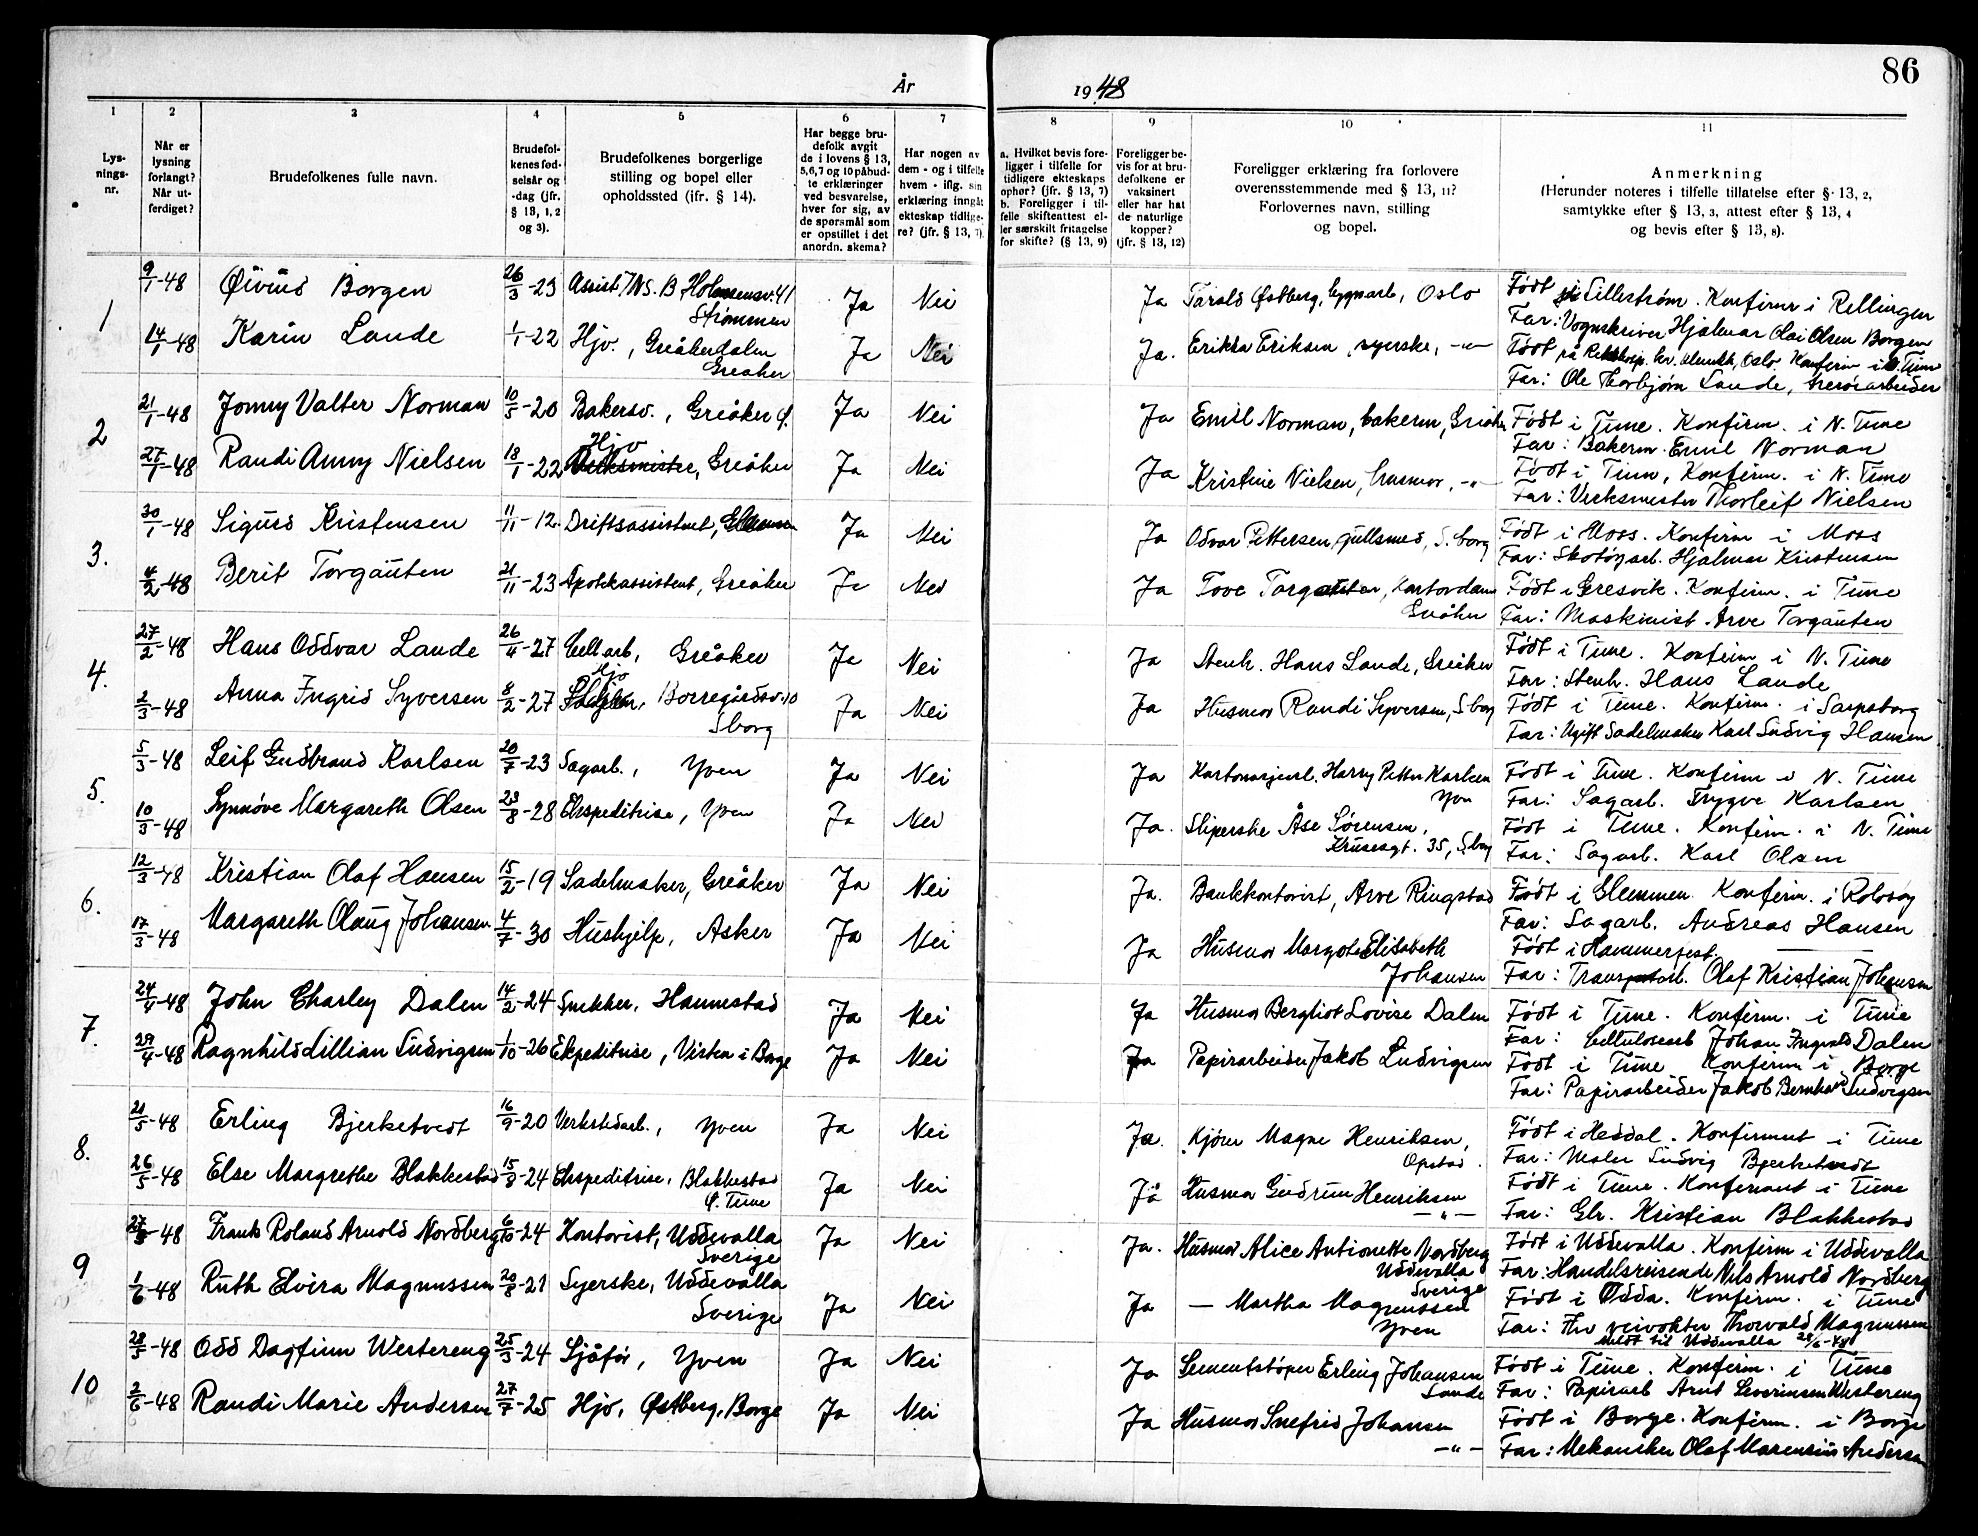 86
År 1948
1 2 3 4 5 6 7 8 9 10 11
Lysningsnr.
Når er lysning forlangt? Når utferdiget?
Brudefolkenes fulle navn.
Brudefolkenes fødselsår og -dag (jfr. § 13, 1, 2 og 3).
Brudefolkenes borgerlige stilling og bopel eller opholdssted (ifr. § 14).
Har begge brudefolk avgit de i lovens § 13, 5, 6, 7 og 10 påbudte erklæringer ved besvarelse, hver for sig, av de spørsmål som er opstillet i det anordn. skema?
Har nogen av dem - og i tilfelle hvem - iflg. sin erklæring inngåt ekteskap tidligere? (jfr. § 13, 7).
a. Hvilket bevis foreligger i tilfelle for tidligere ekteskaps ophør? (jfr. § 13, 7)
b. Foreligger i tilfelle skifteattest eller særskilt fritagelse for skifte? (§ 13, 9)
Foreligger bevis for at brudefolkene er vaksinert eller har hat de naturlige kopper? (jfr. § 13, 12)
Foreligger erklæring fra forlovere overensstemmende med § 13, 11? Forlovernes navn, stilling og bopel.
Anmerkning
(Herunder noteres i tilfelle tillatelse efter § 13, 2, samtykke efter § 13, 3, attest efter § 13, 4 og bevis efter § 13, 8).
1
9/1-48 Øivind Borgen 26/3-23 Assist. NSB Strømmen Ja Nei Ja Tarald Østberg, Oslo Født Lillestrøm. Konfirm i Rellingen
Far: Vognskriver Hjalmar Olai Olsen Borgen
14/1-48 Karin Lande 1/1-22 Hjv., Greåkerdalen Greåker Ja Nei Ja. Erikka Eriksen, syerske, -"- Født på Oslo Konfirm i N. Tune
Far: Ole Thorbjørn Lande,
2
21/1-48 Jonny Valter Norman 10/5-20 Bakersv., Greåker Ja Nei Ja Emil Norman, bakerm, Greåker Født i Tune. Konfirm. i N. Tune
Far: Bakerm. Emil Norman
27/1-48 Randi Anny Nielsen 18/1-22 Hjv Greåker Ja Nei Ja Kristine Nielsen, husmor, -"- Født i Tune, Konfirm. i N. Tune
Far: Verksmester Thorleif Nielsen
3.
30/1-48 Sigurd Kristensen 11/11-12 Driftsassistent, Glemmen Ja Nei Ja Odvar Pettersen, gullsmed, S.borg Født i Moss. Konfirm i Moss
Far: Skotøyarb. Hjalmar Kristensen
4/2-48 Berit Torgauten 21/11-23 Apotekassistent, Greåker Ja Nei Ja Tove Torgauten, kontordame Greåker Født i Gresvik. Konfirm. i Tune
Far: Maskinist Arve Torgauten
4.
27/2-48 Hans Oddvar Lande 26/4-27 Cell.arb, Greåker Ja Nei Ja Stenh. Hans Lande, Greåker Født i Tune. Konfirm i N. Tune
Far: Stenh. Hans Lande
2/3-48 Anna Ingrid Syversen 8/2-27 Hjv Borregårdsv. 10 Sborg Ja Nei Ja Husmor Randi Syversen, Sborg Født i Tune. Konfirm. i Sarpsborg
Far: Ugift Sadelmaker Karl Ludvig Hansen
5.
5/3-48 Leif Gudbrand Karlsen 20/7-23 Sagarb., Yven Ja Nei Ja Harry Petter Karlsen Yven Født i Tune. Konfirm i N. Tune
Far: Sagarb. Trygve Karlsen
10/3-48 Synnøve Margareth Olsen 23/8-28 Ekspeditrise, Yven Ja Nei Ja. Åse Sørensen, Krusesgt. 35, Sborg Født i Tune. Konfirm. i N. Tune
Far: Sagarb. Karl Olsen
6.
12/3-48 Kristian Olaf Hansen 15/2-19 Sadelmaker, Greåker Ja Nei Ja. Bankkontorist, Arve Ringstad Født i Glemmen. Konfirm. i Rolvsøy
Far: Sagarb. Andreas Hansen
17/3-48 Margareth Olaug Johansen 4/7-30 Hushjelp, Asker Ja Nei Ja Husmor Margot Elisabeth Johansen Født i Hammerfest.
Far: Transportarb. Olaf Kristian Johansen
7.
24/4-48 John Charley Dalen 14/2-24 Snekker, Hannestad Ja Nei Ja Husmor Bergliot Lovise Dalen Født i Tune. Konfirm. i Tune
Far: Cellulosearb Johan Ingvald Dalen
29/4-48 Ragnhild Lillian Ludvigsen 1/10-26 Ekspeditrise, Visten i Borge Ja Nei Ja Papirarbeider Jakob Ludvigsen Født i Tune Konfirm i Borge
Far: Papirarbeider Jakob Bernhard Ludvigsen
8.
21/5-48 Erling Bjerketvedt 16/9-20 Verkstedarb., Yven Ja Nei Ja. Kjører Magne Henriksen, Opstad. Født i Heddal. Konfirmert i Tune
Far: Maler Ludvig Bjerketvedt
26/5-48 Else Margrethe Blakkestad 15/8-24 Ekspeditrise, Blakkestad Tune Ja Nei Ja Husmor Gudrun Henriksen -"- Født i Tune. Konfirmert i Tune
Far: Kristian Blakkestad
9
27/5-48 Frank Roland Arnold Nordberg 6/10-24 Kontorist, Uddevalla Sverige Ja Nei Ja. Husmor Alice Antionette Nordberg Uddevalla Sverige Født i Uddevalla. Konfirm i Uddevalla
Far: Handelsreisende Nils Arnold Nordberg
1/6-48 Ruth Elvira Magnussen 20/8-21 Syerske, Uddevalla Sverige Ja Nei Ja — Martha Magnussen Yven Født i Odda. Konfirm. i Tune
Far: Fhv veivokter Thorvald Magnussen
meldt til Uddevalla 28/6-48
10
28/5-48 Odd Dagfinn Westereng 25/3-24 Sjåfør, Yven Ja Nei Ja Sementstøper Erling Johansen Sande Født i Tune. Konfirm. i Tune
Far: Papirarb Arnt Severinsen Westereng
2/6-48 Randi Marie Andersen 27/7-25 Hjv, Østberg, Borge Ja Nei Ja Husmor Snefrid Johansen -"- Født i Borge. Konfirm. i Borge
Far: Mekaniker Olaf Marensius Andersen